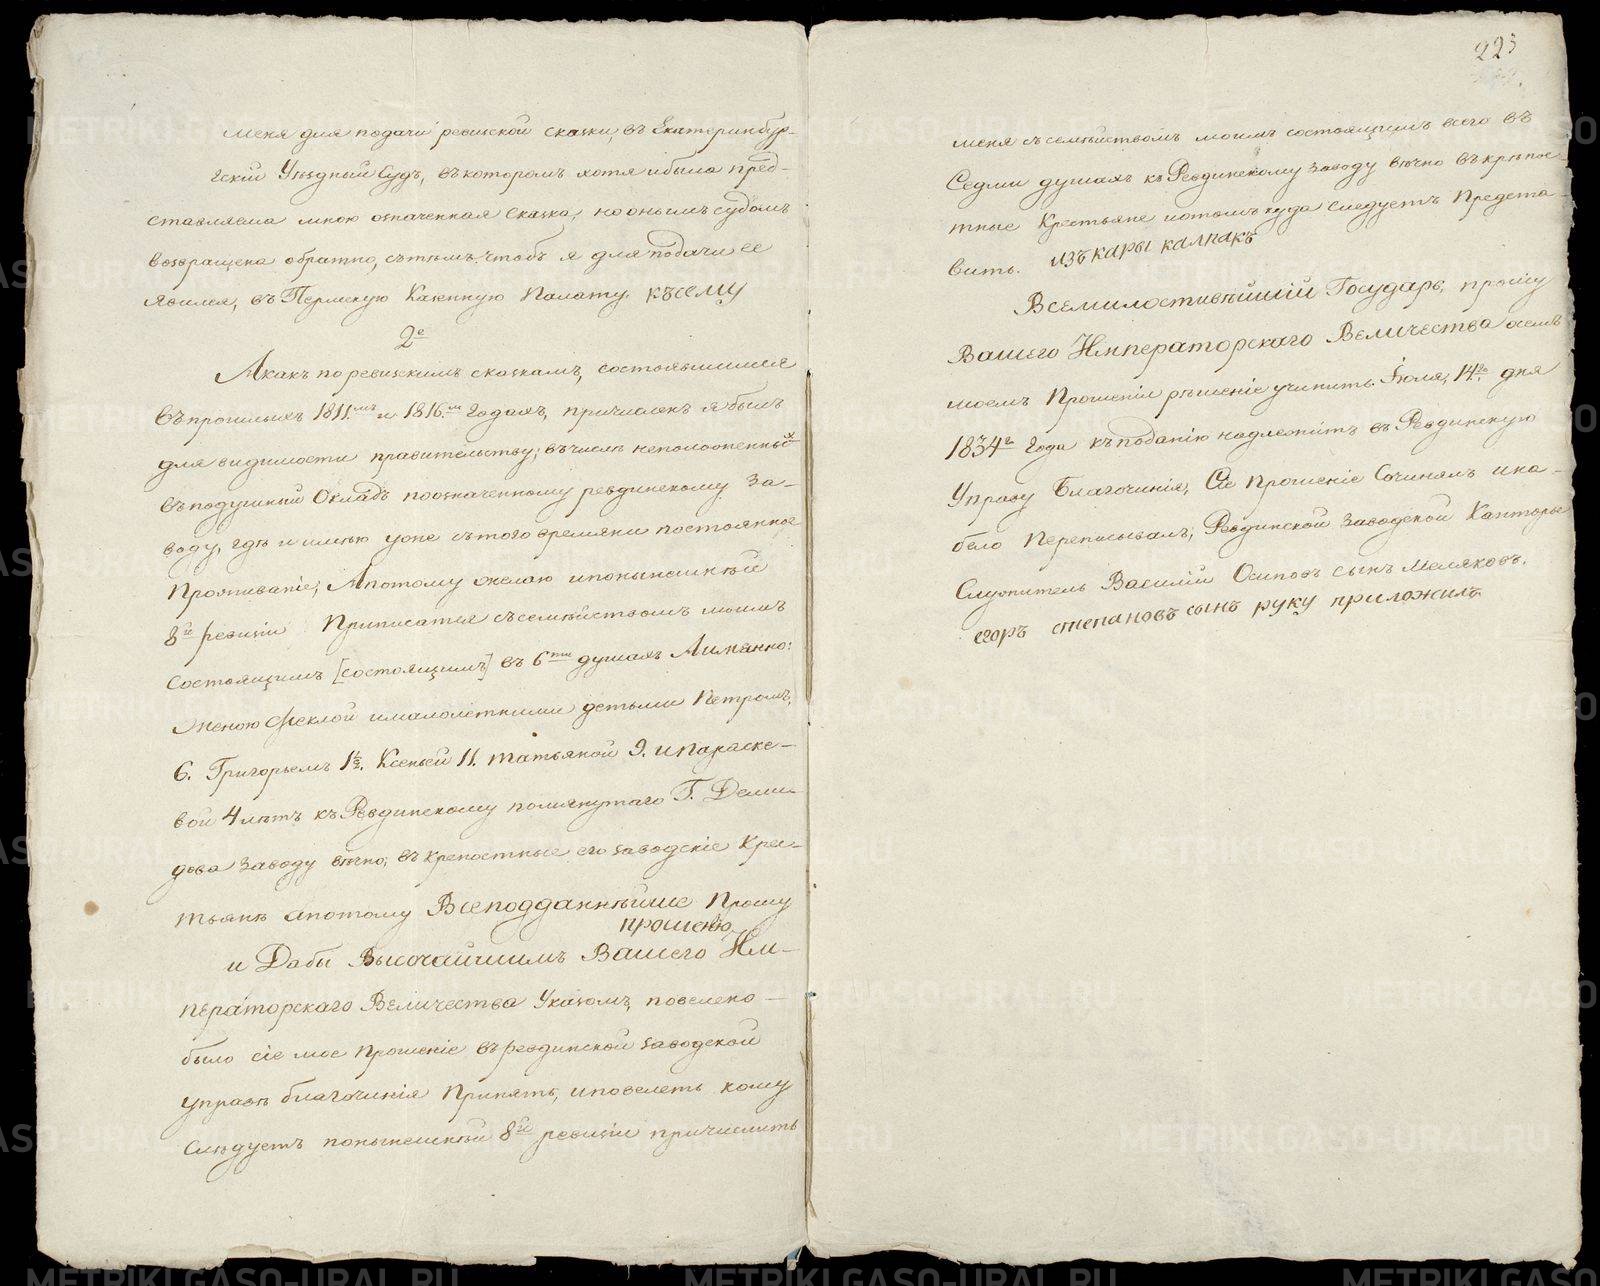 меня для подачи ревизской сказки, въ Екатеринбур-
гскiй Уѣздный Судъ, въ которомъ хотя и была пред-
ставляема мною означенная Сказка, но онымъ судомъ
возвращена обратно, сътѣмъ чтобъ я для подачи ее
явился, въ Пермскую Казенную Палату. къ сему
2е
А какъ по ревизскимъ сказкамъ, состоявшимся
въ прошлыхъ 1811.мъ и 1816.м годахъ, причисленъ я былъ
для видимости правительству, въ числѣ неположенныхъ
въ подушный Окладъ по означенному ревдинскому За-
воду, гдѣ и имѣю уоне сътого времяни постоянное
Проживанiе; А потому желаю и по нынешнѣй
8й ревизiи Приписатся съ семѣйствомъ моимъ
Состоящимъ [состоящимъ] въ 6ти душахъ А имянно:
Женою Феклой и малолетними детьми Петромъ,
6. Григорьемъ 1½. Ксеньей 11. татьяной 9. и параске-
вой 4 лѣтъ къ Ревдинскому помянутаго Г. Деми-
дова Заводу вѣчно, въ крепостные его заводскiе Крес-
тьянѣ а потому Всеподданнѣйше Прошу
прошенiю
и Дабы Высочайшимъ Вашего Им-
ператорскаго Величества Указомъ, повелено
было сiе мое Прошенiе въ ревдинской заводской
управѣ благочинiя Принять, и повелеть кому
Слѣдуетъ по нынешнѣй 8й ревизiи причислить
223
меня съ семѣйствомъ моимъ состоящимъ всего въ
Седми душахъ къ Ревдинскому заводу вѣчно въ крѣпос-
тные Крестьяне и о томъ куда следуетъ Предста-
вить. изъ кары калпакъ
Всемилостивѣйшiй Государь, прошу
Вашего Императорскаго Величества о семъ
моемъ Прошенiи рѣшенiе учинить. Iюля, 14.го дня
1834го Года къ поданiю надлежитъ въ Ревдинскую
Управу Благочинiя, Сiе Прошенiе Сочинялъ и на-
бело Переписывалъ, Ревдинской Заводской Канторы
Служитель Василiй Осиповъ сынъ Меляковъ.
егоръ степановъ сынъ руку приложилъ